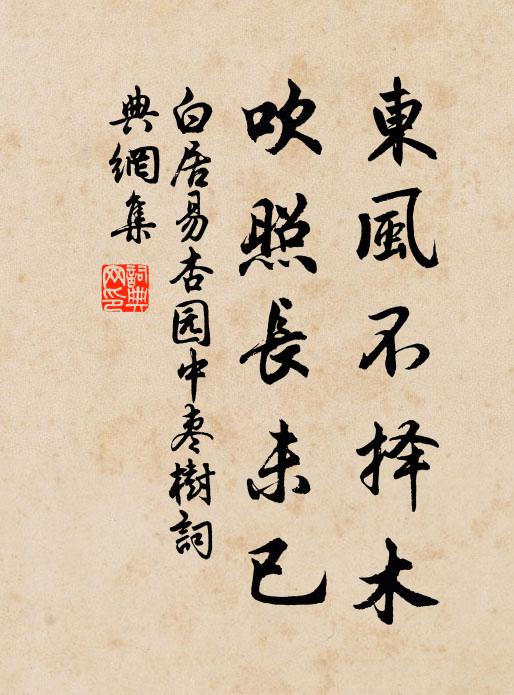 東風不择木
吹照長未已
白居易杏园中枣樹詞
典網集
詞典網印